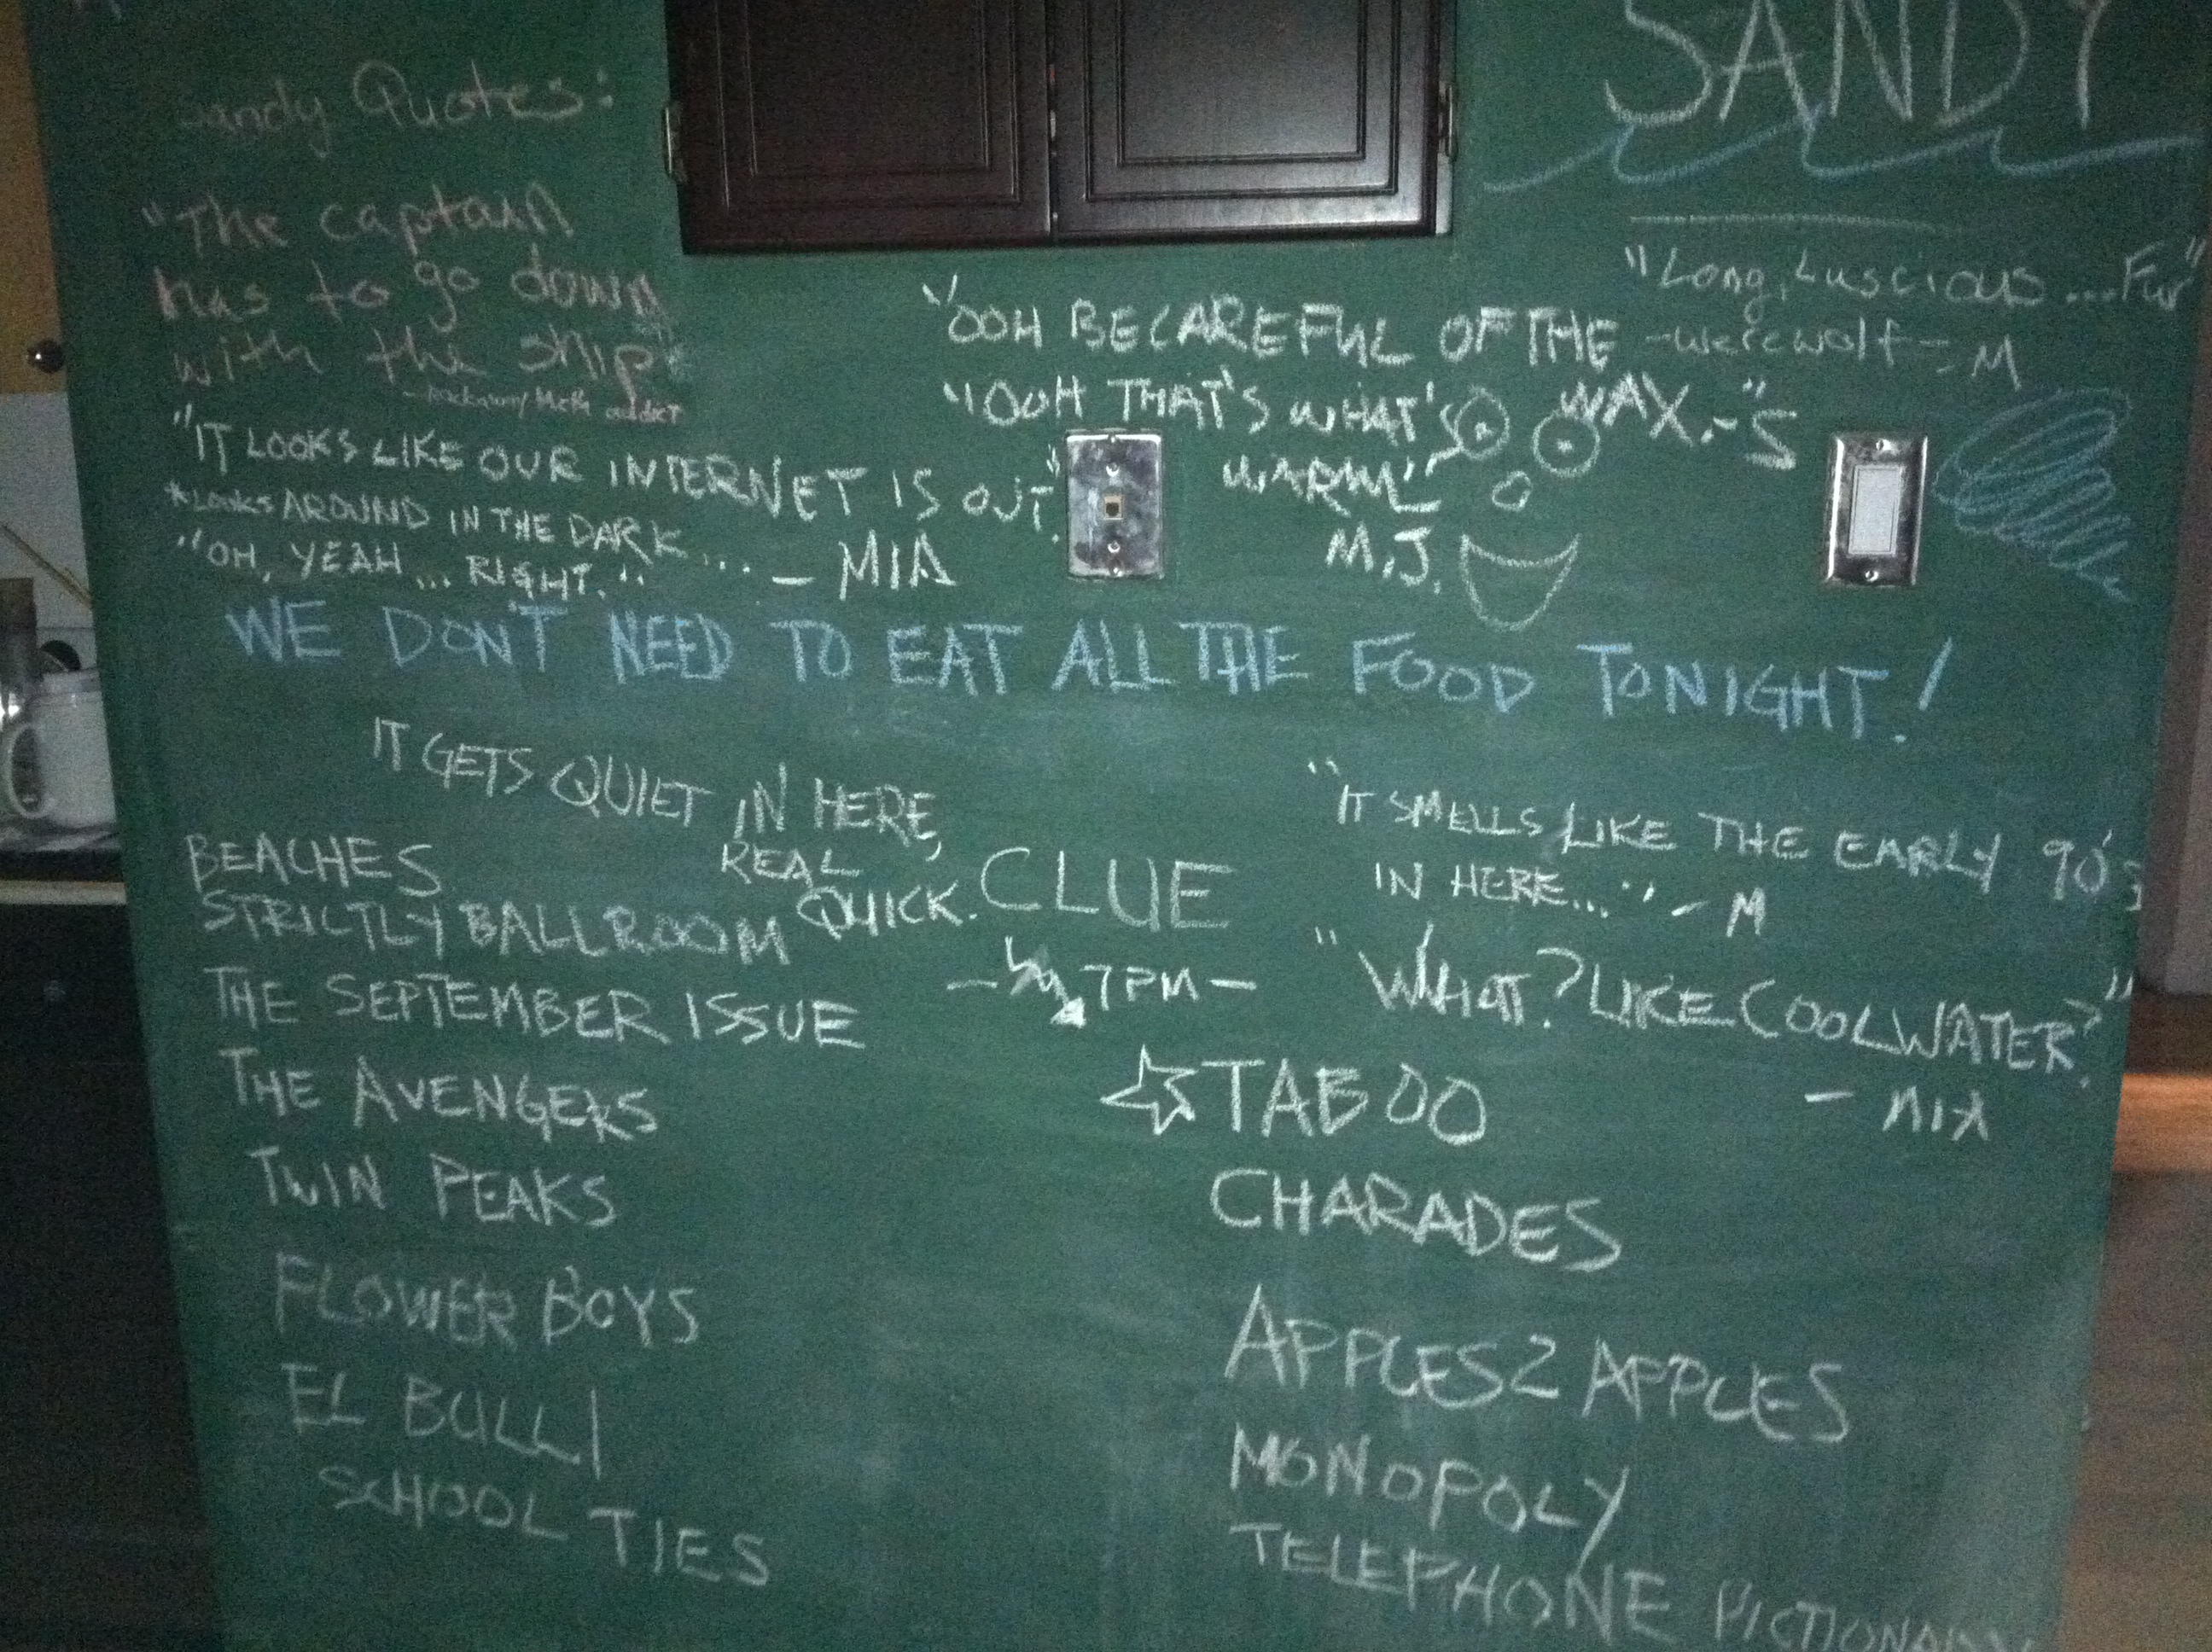 Sandy Quotes:
"The captain
has to go down
with the ship"
- Rockaway Meth addict
"IT LOOKS LIKE OUR INTERNET IS OUT."
*LOOKS AROUND IN THE DARK...
"OH, YEAH... RIGHT." - MIA
SANDY
"Long, Luscious... Fur"
- werewolf - M
"OOH BE CAREFUL OF THE
WAX." - S
"OOH THAT'S WHAT'S
WARM"
M.J.
WE DON'T NEED TO EAT ALL THE FOOD TONIGHT!
IT GETS QUIET IN HERE,
REAL
QUICK.
BEACHES
STRICTLY BALLROOM
THE SEPTEMBER ISSUE
THE AVENGERS
TWIN PEAKS
FLOWER BOYS
EL BULLI
SCHOOL TIES
CLUE
- 7PM -
"IT SMELLS LIKE THE EARLY 90'S
IN HERE..." - M
"WHAT? LIKE COOLWATER?"
- MIA
TABOO
CHARADES
APPLES 2 APPLES
MONOPOLY
TELEPHONE PICTIONARY